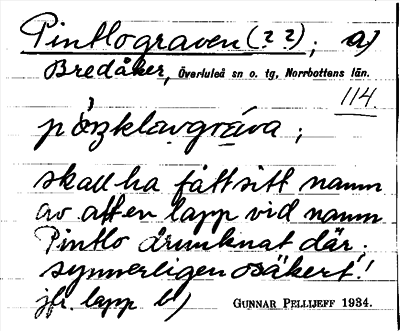 Pintlograven (??); a)
Bredåker, Överluleå sn o. tg, Norrbottens län.
114
skall ha fått sitt namn
av att en lapp vid namn
Pintlo drunknat där.
synnerligen osäkert!
jfr. lapp b) GUNNAR PELLIJEFF 1934.